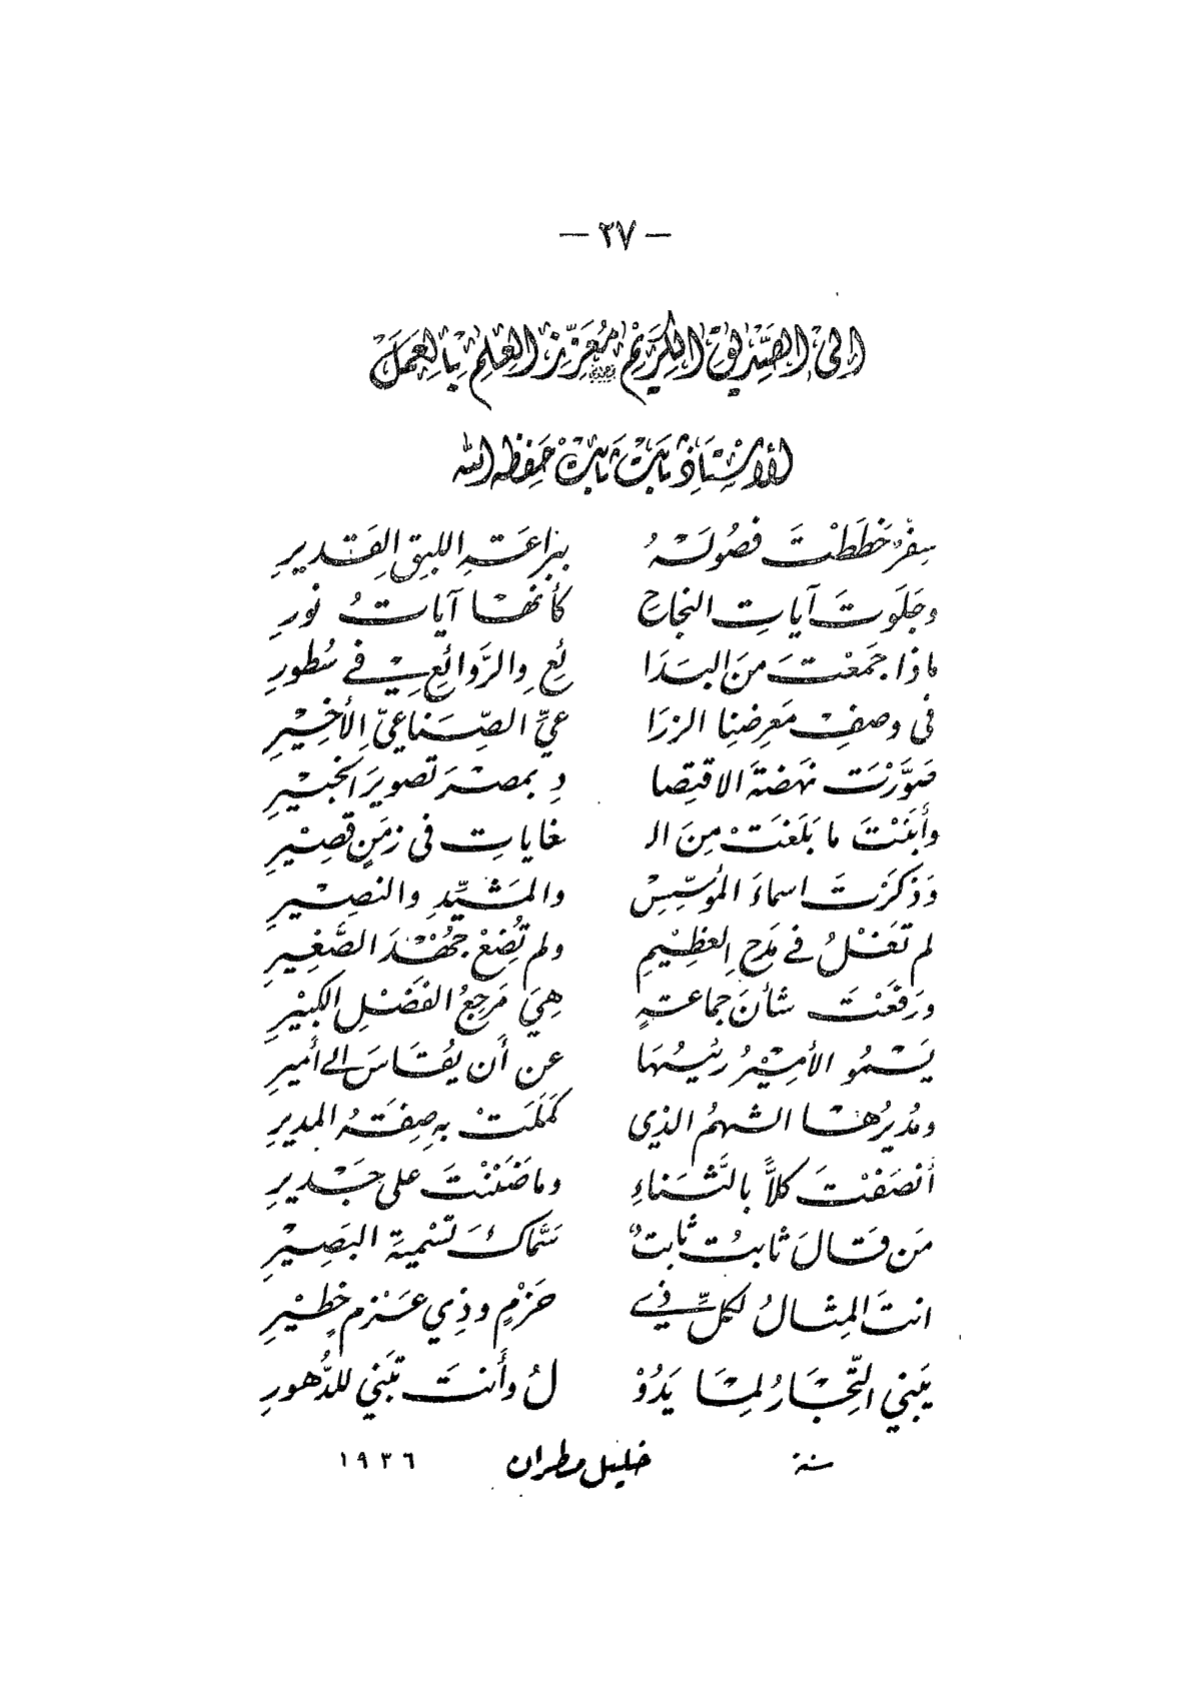 — ٢٧ —
الى الصَّدِيقِ الكَرِيْمِ مُعَزِّزِ العِلمِ بِالعَمَلْ
الأُسْتَاذِ ثابت ثَابت حَفِظَه الله
سِفْرٌ خَطَطْتَ فصُولَهُ ببَراعَةِ اللبِقِ القَديرِ
وجَلَوتَ آيَاتِ النجاحِ كأنهَا آيَاتُ نورِ
ماذا جَمَعْتَ مِنَ البَدَا ئِعِ والرَّوائِعِ في سُطورِ
في وصفِ مَعرِضِنا الزرَا عيِّ الصِّنَاعيِّ الأخِيْرِ
صَوَّرْتَ نهَضةَ الاقتِصا دِ بمصْرَ تصويرَ الخَبيْرِ
وأَبنَْتَ ما بَلَغَتْ مِنَ الـ غاياتِ في زمَنٍ قَصِيْرِ
وَذكَرْتَ اسماءَ المؤسِّسِ والمَشَيِّدِ والنصِيْرِ
لم تَغْلُ في مَدحِ العظِيْمِ ولم تُضِعْ جُهْدَ الصَّغِيرِ
ورَفَعْتَ شأنَ جماعةٍ هِيَ مَرجِعُ الفَضْلِ الكَبِيْرِ
يَسْمُو الأمِيْرُ رئيسُهَا عن أَن يُقَاسَ الى أَميرِ
ومُديرُهَا الشهمُ الذي كَمَلَتْ بهِ صِفَةُ المديرِ
أَنصَفْتَ كلاًّ بالثَّنَاءِ وماضَنَنْتَ على جَديرِ
مَن قَالَ ثابتُ ثابتٌ سَمَّاكَ تَسْميَةَ البَصِيْرِ
انتَ المِثالُ لكلِّ ذي حَزْمٍ وذِي عَزمٍ خطِيْرِ
يَبني التِّجَارُ لمَا يَدُوْ لُ وأَنتَ تَبْني للدُّهورِ
سنة خليل مطران ١٩٣٦